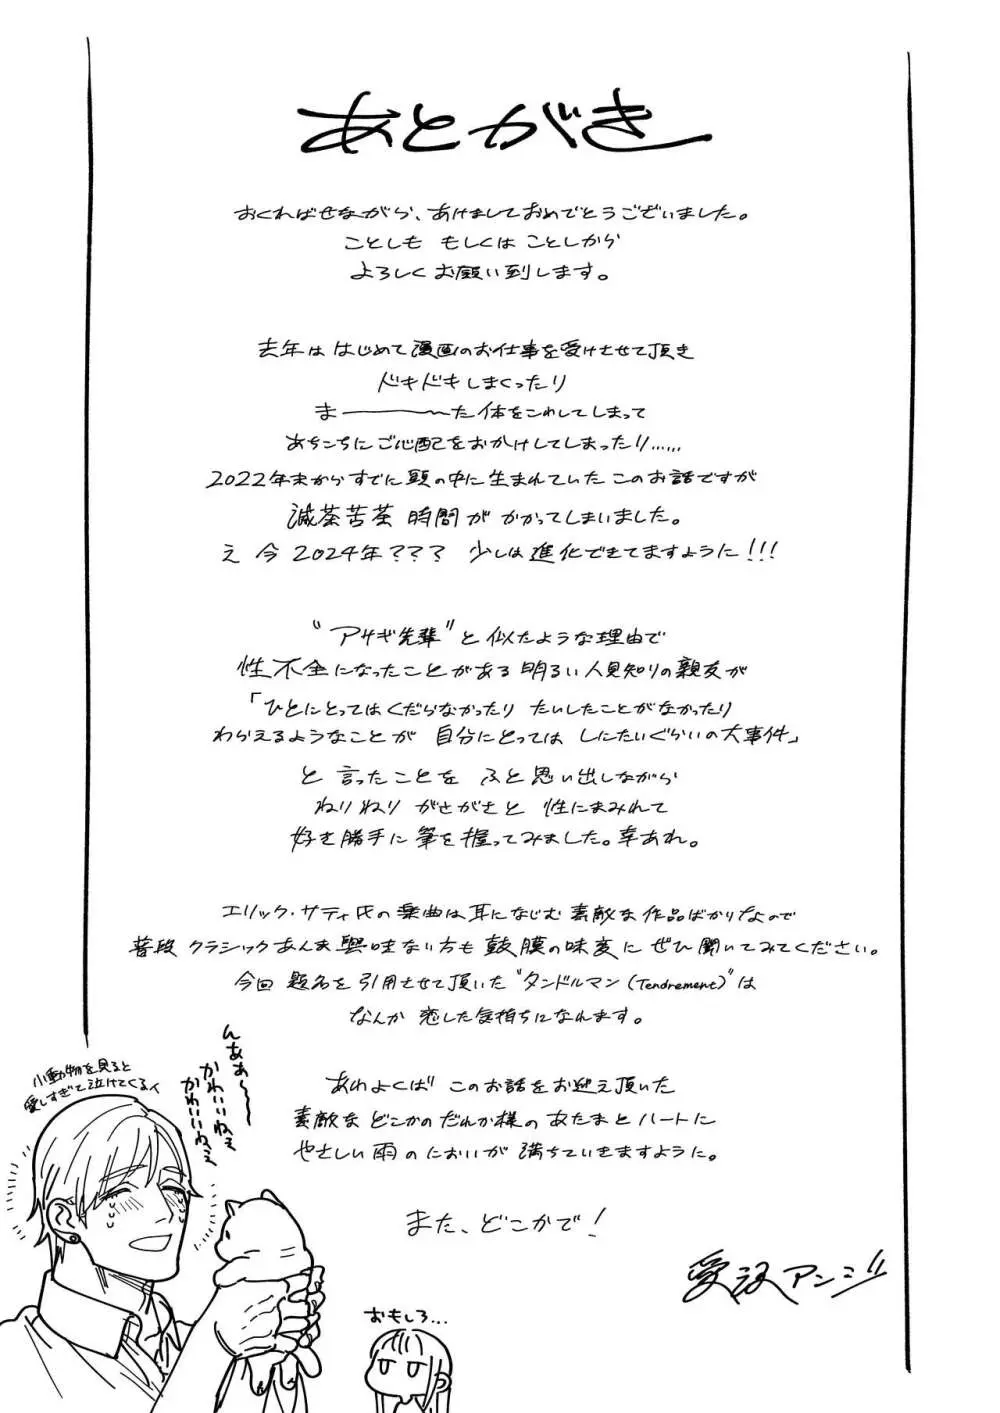 あとがき
おくればせながら、あけましておめでとうございました。
ことしも もしくは ことしから
よろしくお願い到します。
去年は はじめて漫画のお仕事を受けさせて頂き
ドキドキしまくったり
ま――――〜た体をこわしてしまって
あちこちにご心配をおかけしてしまったり……
2022年末からすでに頭の中に生まれていた このお話ですが
滅茶苦茶 時間が かかってしまいました。
え 今 2024年??? 少しは進化できてますように!!!
"アサギ先輩" と似たような理由で
性不全になったことがある 明るい人見知りの親友が
「ひとにとってはくだらなかったり たいしたことがなかったり
わらえるようなことが 自分にとっては しにたいぐらいの大事件」
と 言ったことを ふと思い出しながら
ねりねり がさがさと 性にまみれて
好き勝手に筆を握ってみました。幸あれ。
エリック・サティ氏の楽曲は耳になじむ素敵な作品ばかりなので
普段 クラシックあんま興味ない方も 鼓膜の味変に ぜひ聞いてみてください。
今回 題名を 引用させて頂いた "タンドルマン(Tendrement)"は
なんか 恋した気持ちになれます。
あわよくば このお話をお迎え頂いた
素敵な どこかのだれか様の あたまと ハートに
やさしい雨のにおいが 満ちていきますように。
また、どこかで!
アンジ
小動物を見ると
愛しすぎて泣けてくるイ
んああ〜――
かわいいねぇ
かわいいねぇ
おもしろ…